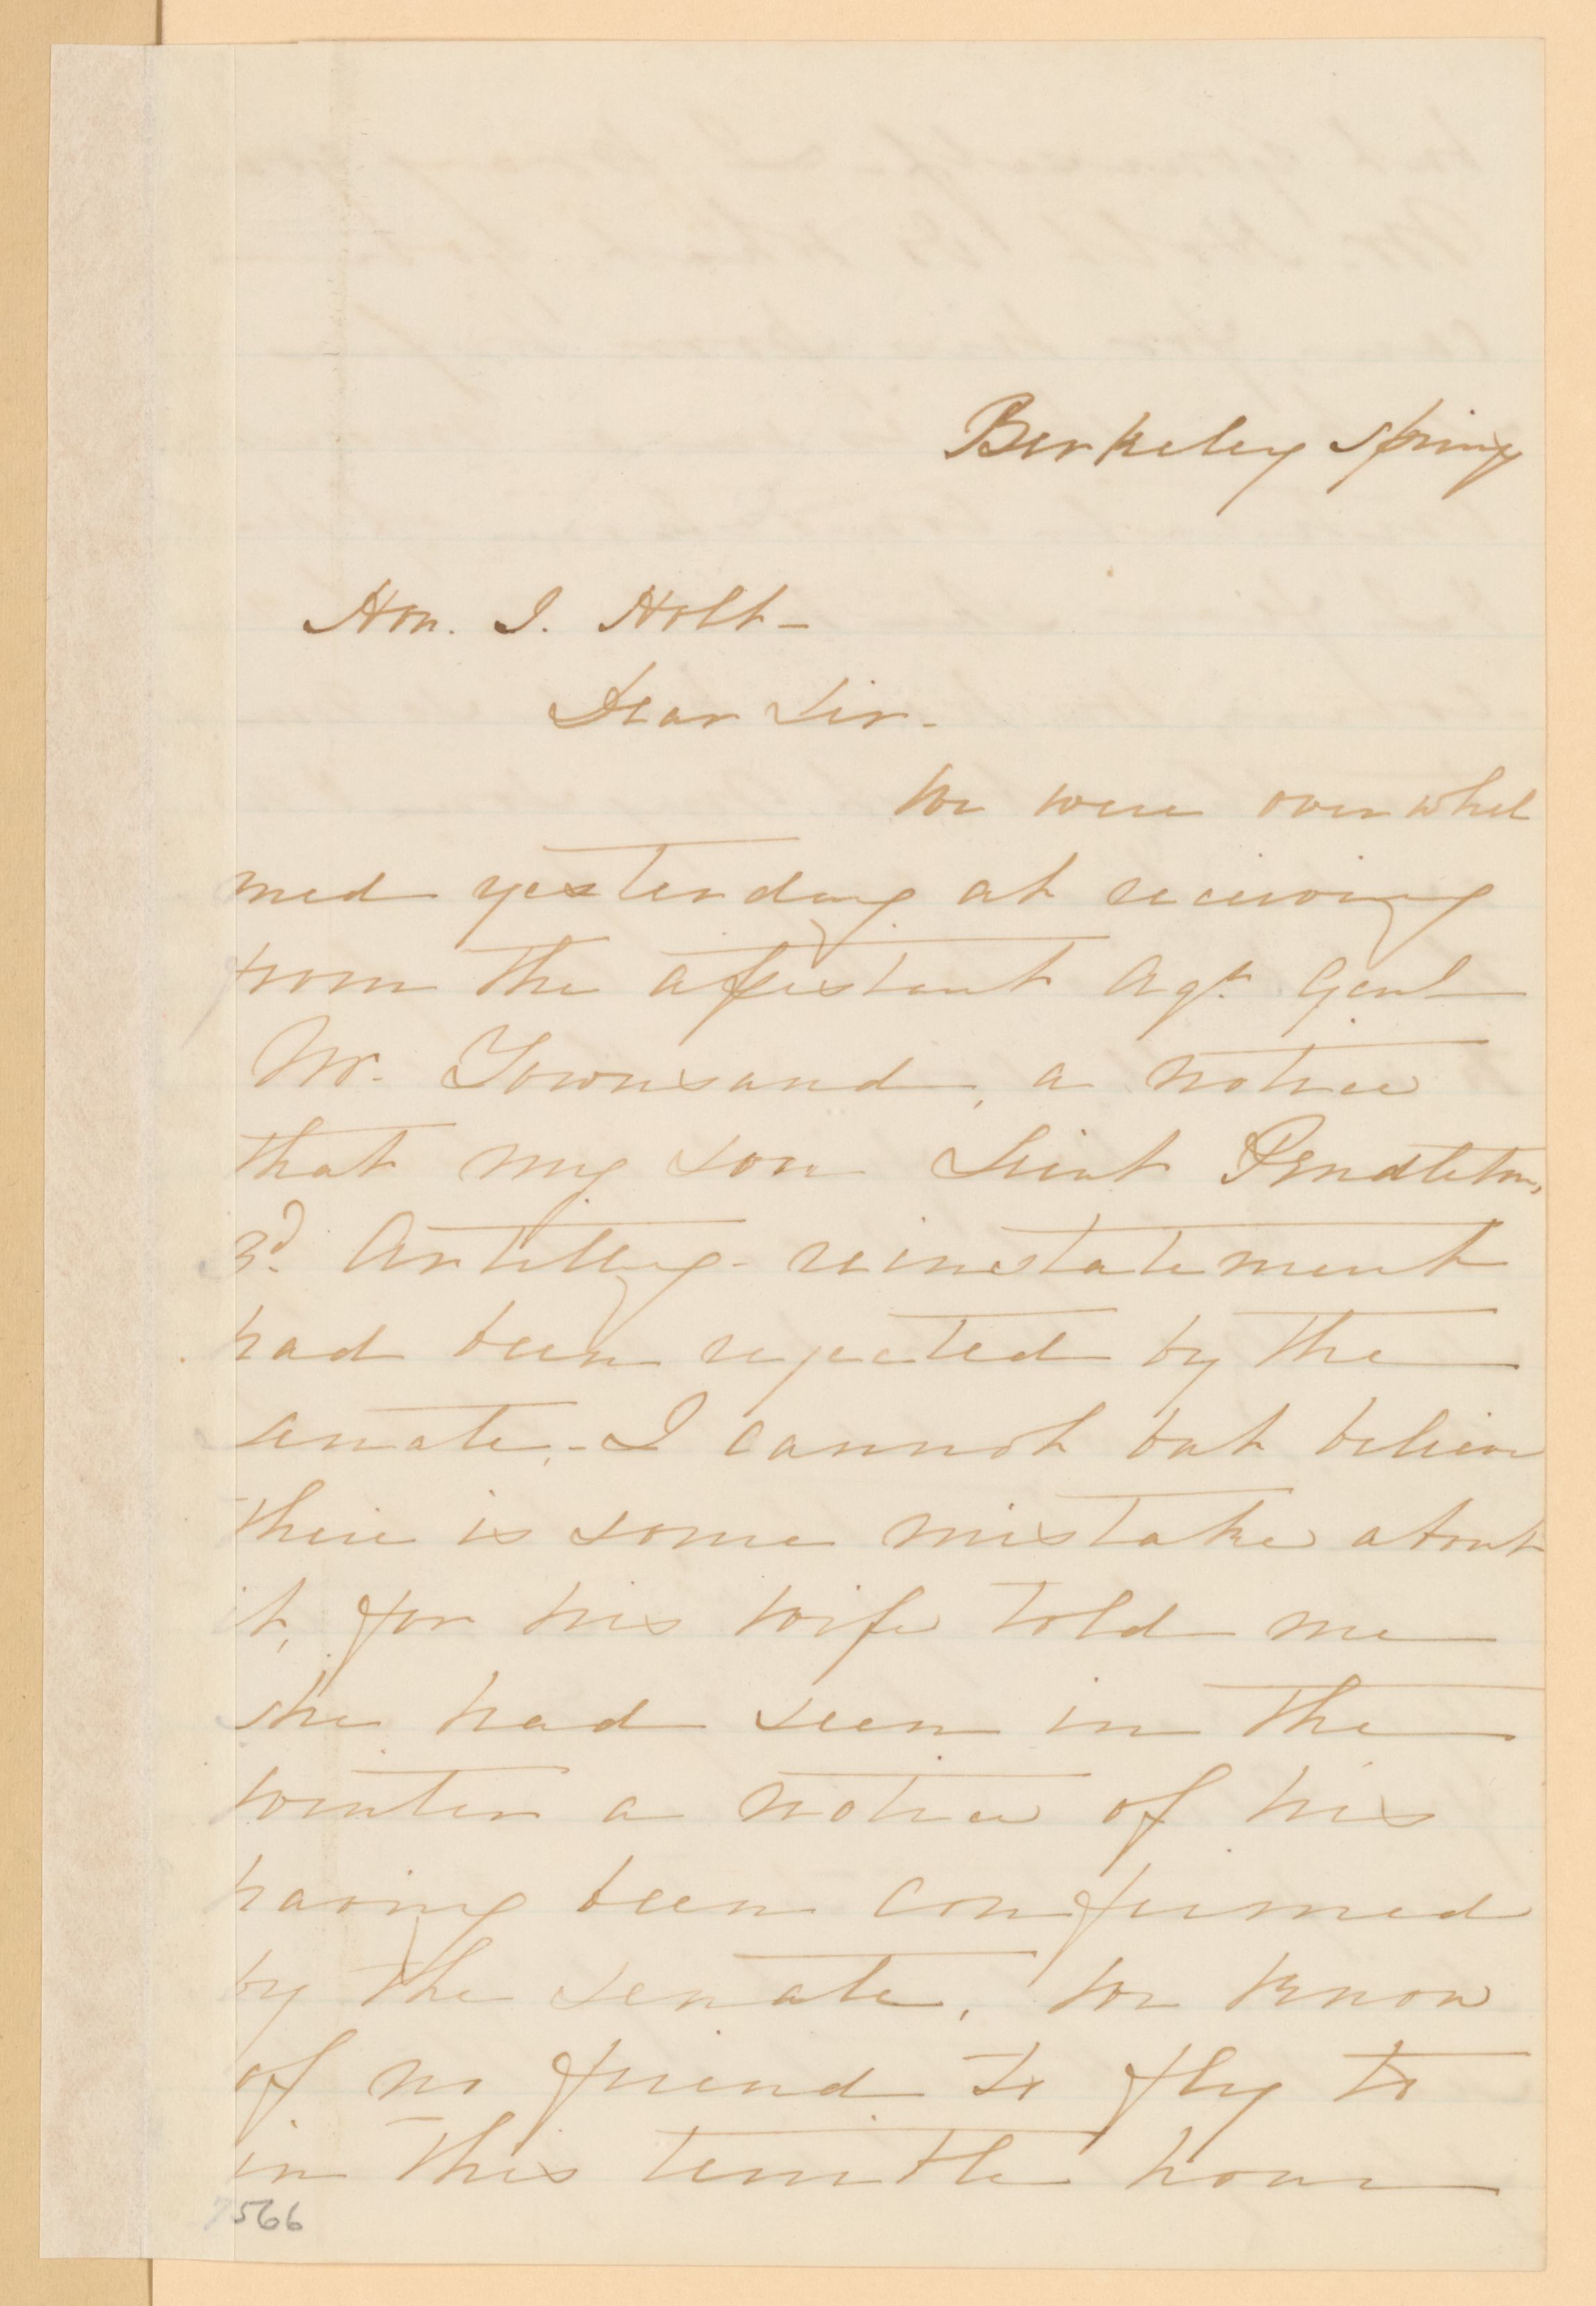 Berkeley Springs
Hon. J. Holt-
Dear Sir-
We were overwhel
med yesterday at receiving
from the assistant Agt. Genl
Mr. Townsand, a notice
that my son Lieut Pendleton,
3d. Artillery- reinstatement
had been rejected by the
Senate,- I cannot but believe
there is some mistake about
it, for his wife told me
she had seen in the
winter a notice of his
having been confirmed
by the Senate, We know
of no friend to fly to
in this terrible hour
7566